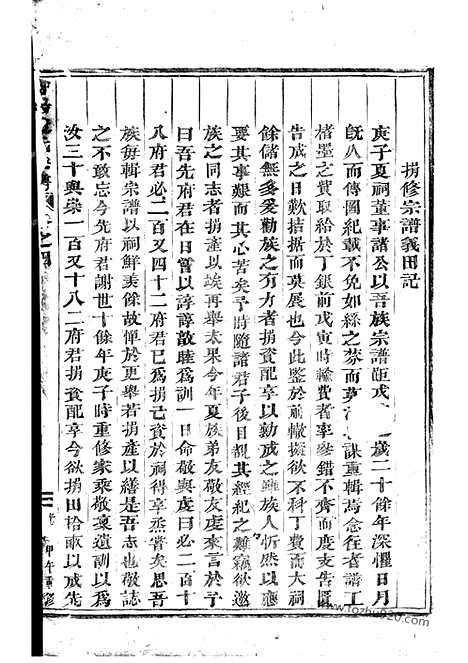 捐修宗譜義田記
庚子夏祠董事諸公以吾族宗譜距戊 歲二十餘年深懼日月
既久而傳圖紀載不免如絲之棼而 謀重輯焉念在者譜工
楮墨之費取給於丁銀前戊寅時輸費者率參錯不齊而度支告匱
告成之日歉拮据而莫展也今此鑒於前轍擬欲不科丁費而大祠
餘儲無多爰勸族之有力者捐資配享以勷成之 族人忻然以應
要其事艱而其心苦矣予時隨諸君子後目覩其經紀之難竊欲邀
族之同志者捐產以俟再舉未果今年夏族弟友敬友虔來言於予
曰吾先府君在日嘗以諄諄敦睦爲訓一日命敬與虔曰必二百十
八府君必二百又四十二府君已爲捐己資於祠得享烝嘗矣思吾
族每輯宗譜以祠鮮羨餘故憚於更舉若捐產以繕是吾志也敬誌
之不敢忘今先府君謝世十餘年庚子時重修家乘敬稟遺訓以爲
汝三十與崇一百又十八二府君捐資配享今欲捐田拾畝以成先
甲午重修
www.fozhu920.com